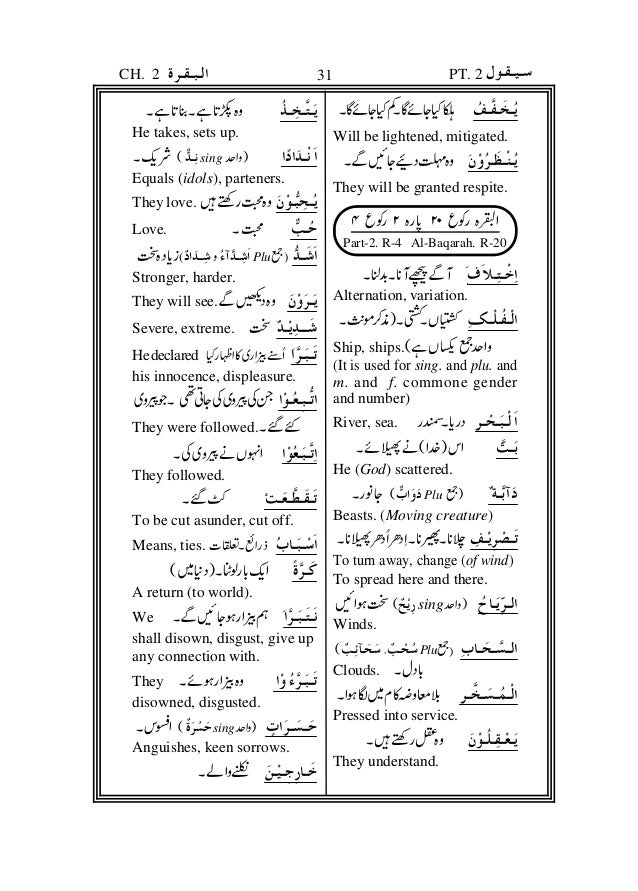 CH. 2 البقرة 31 PT. 2 سيقول
يُخَفَّفُ ہلکا کیا جائے گا۔ کم کیا جائے گا۔
Will be lightened, mitigated.
يُنْظَرُوْنَ وہ مہلت دیئے جائیں گے۔
They will be granted respite.
البقرہ رکوع ۲۰ پارہ ۲ رکوع ۴
Part-2. R-4 Al-Baqarah. R-20
اِخْتِلَافَ آگے پیچھے آنا۔ بدلنا۔
Alternation, variation.
الْفُلْكِ کشتیاں۔ کشتی۔ (مذکر مونث۔
Ship, ships.(واحد جمع یکساں ہے
(It is used for sing. and plu. and
m. and f. commone gender
and number)
اَلْبَحْرِ دریا۔ سمندر River, sea.
بَثَّ اس (خدا) نے پھیلائے۔
He (God) scattered.
دَآبَّةٍ (جمع Plu دَوَابُّ) جانور۔
Beasts. (Moving creature)
تَصْرِيْفِ چلانا۔ پھیرنا۔ اِدھر اُدھر پھیلانا۔
To turn away, change (of wind)
To spread here and there.
الرِّيَاحُ (واحد sing رِيْحٌ) سخت ہوائیں
Winds.
السَّحَابِ (جمع Plu سُحُبٌ، سَحَآئِبُ)
Clouds. بادل۔
الْمُسَخَّرِ بلا معاوضہ کام میں لگا ہوا۔
Pressed into service.
يَعْقِلُوْنَ وہ عقل رکھتے ہیں۔
They understand.
يَتَّخِذُ وہ پکڑتا ہے۔ بناتا ہے۔
He takes, sets up.
اَنْدَادًا (واحد sing نِدٌّ) شریک۔
Equals (idols), parteners.
يُحِبُّوْنَ وہ محبت رکھتے ہیں They love.
حُبٌّ محبت۔ Love.
اَشَدُّ (جمع Plu اَشِدَّآءُ و شِدَادٌ) زیادہ سخت
Stronger, harder.
يَرَوْنَ وہ دیکھیں گے They will see.
شَدِيْدٌ سخت Severe, extreme.
تَبَرَّاَ اُسنے بیزاری کا اظہار کیا He declared
his innocence, displeasure.
اتُّبِعُوْا جن کی پیروی کی جاتی تھی۔ جو پیروی
کئے گئے۔ They were followed.
اِتَّبَعُوْا انہوں نے پیروی کی۔
They followed.
تَقَطَّعَتْ کٹ گئے۔
To be cut asunder, cut off.
اَسْبَابُ ذرائع۔ تعلقات Means, ties.
كَرَّةً ایک بار لوٹنا۔ (دنیا میں)
A return (to world).
نَتَبَرَّاَ ہم بیزار ہو جائیں گے۔ We
shall disown, disgust, give up
any connection with.
تَبَرَّءُوْا وہ بیزار ہوئے۔ They
disowned, disgusted.
حَسَرَاتٍ (واحد sing حَسْرَةٌ) افسوس۔
Anguishes, keen sorrows.
خَارِجِيْنَ نکلنے والے۔